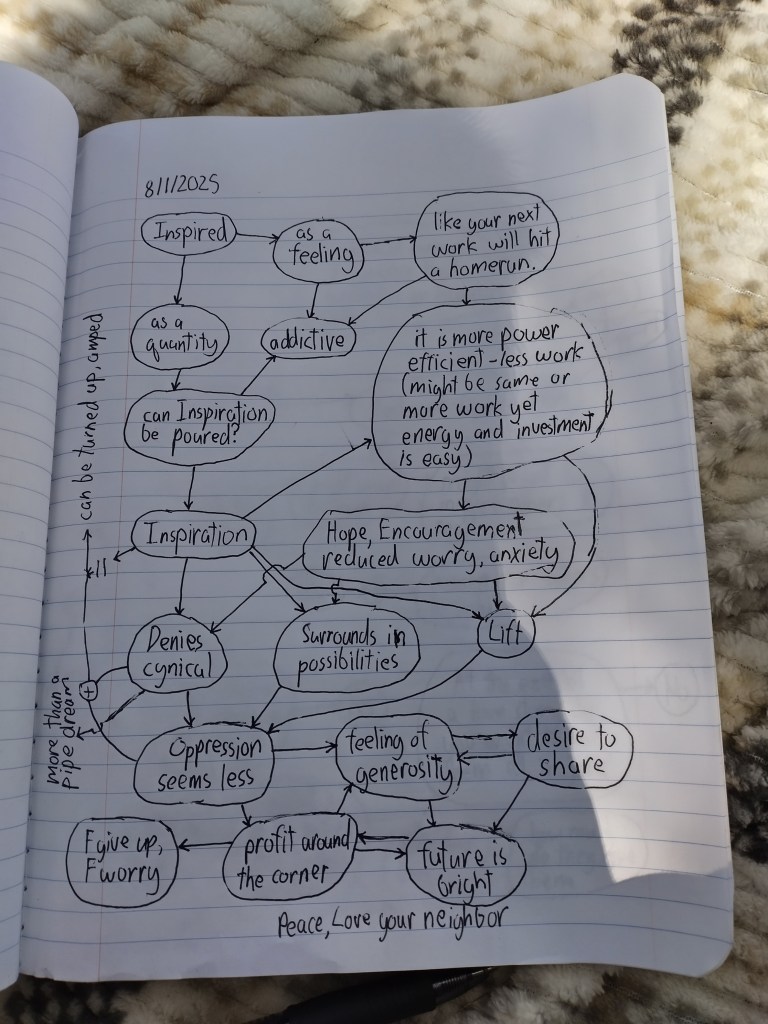 8/1/2025
Inspired
as a
feeling
like your next
work will hit
a homerun.
as a
quantity
addictive
it is more power
efficient - less work
(might be same or
more work yet
energy and investment
is easy)
can Inspiration
be poured?
can be turned up, amped
Inspiration
Hope, Encouragement
reduced worry, anxiety
Denies
cynical
Surrounds in
possibilities
Lift
+
more than a
pipe dream
Oppression
seems less
feeling of
generosity
desire to
share
F give up,
F worry
profit around
the corner
future is
bright
Peace, Love your neighbor